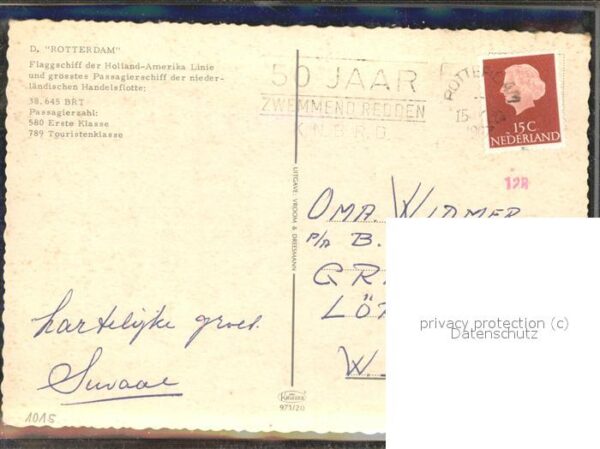 D, "ROTTERDAM"
Flaggschiff der Holland-Amerika Linie
und grösstes Passagierschiff der nieder-
ländischen Handelsflotte:
38.645 BRT
Passagierzahl:
580 Erste Klasse
789 Touristenklasse
50 JAAR
ZWEMMEND REDDEN
K.N.B.R.D.
ROTTERDAM
15
15 C
NEDERLAND
128
UITGAVE: VROOM & DREESMANN
OMA WIDMER
P/A B.
GR
LÖ
W.
hartelijke groet.
KRÜGER
971/20
1015
privacy protection (c)
Datenschutz